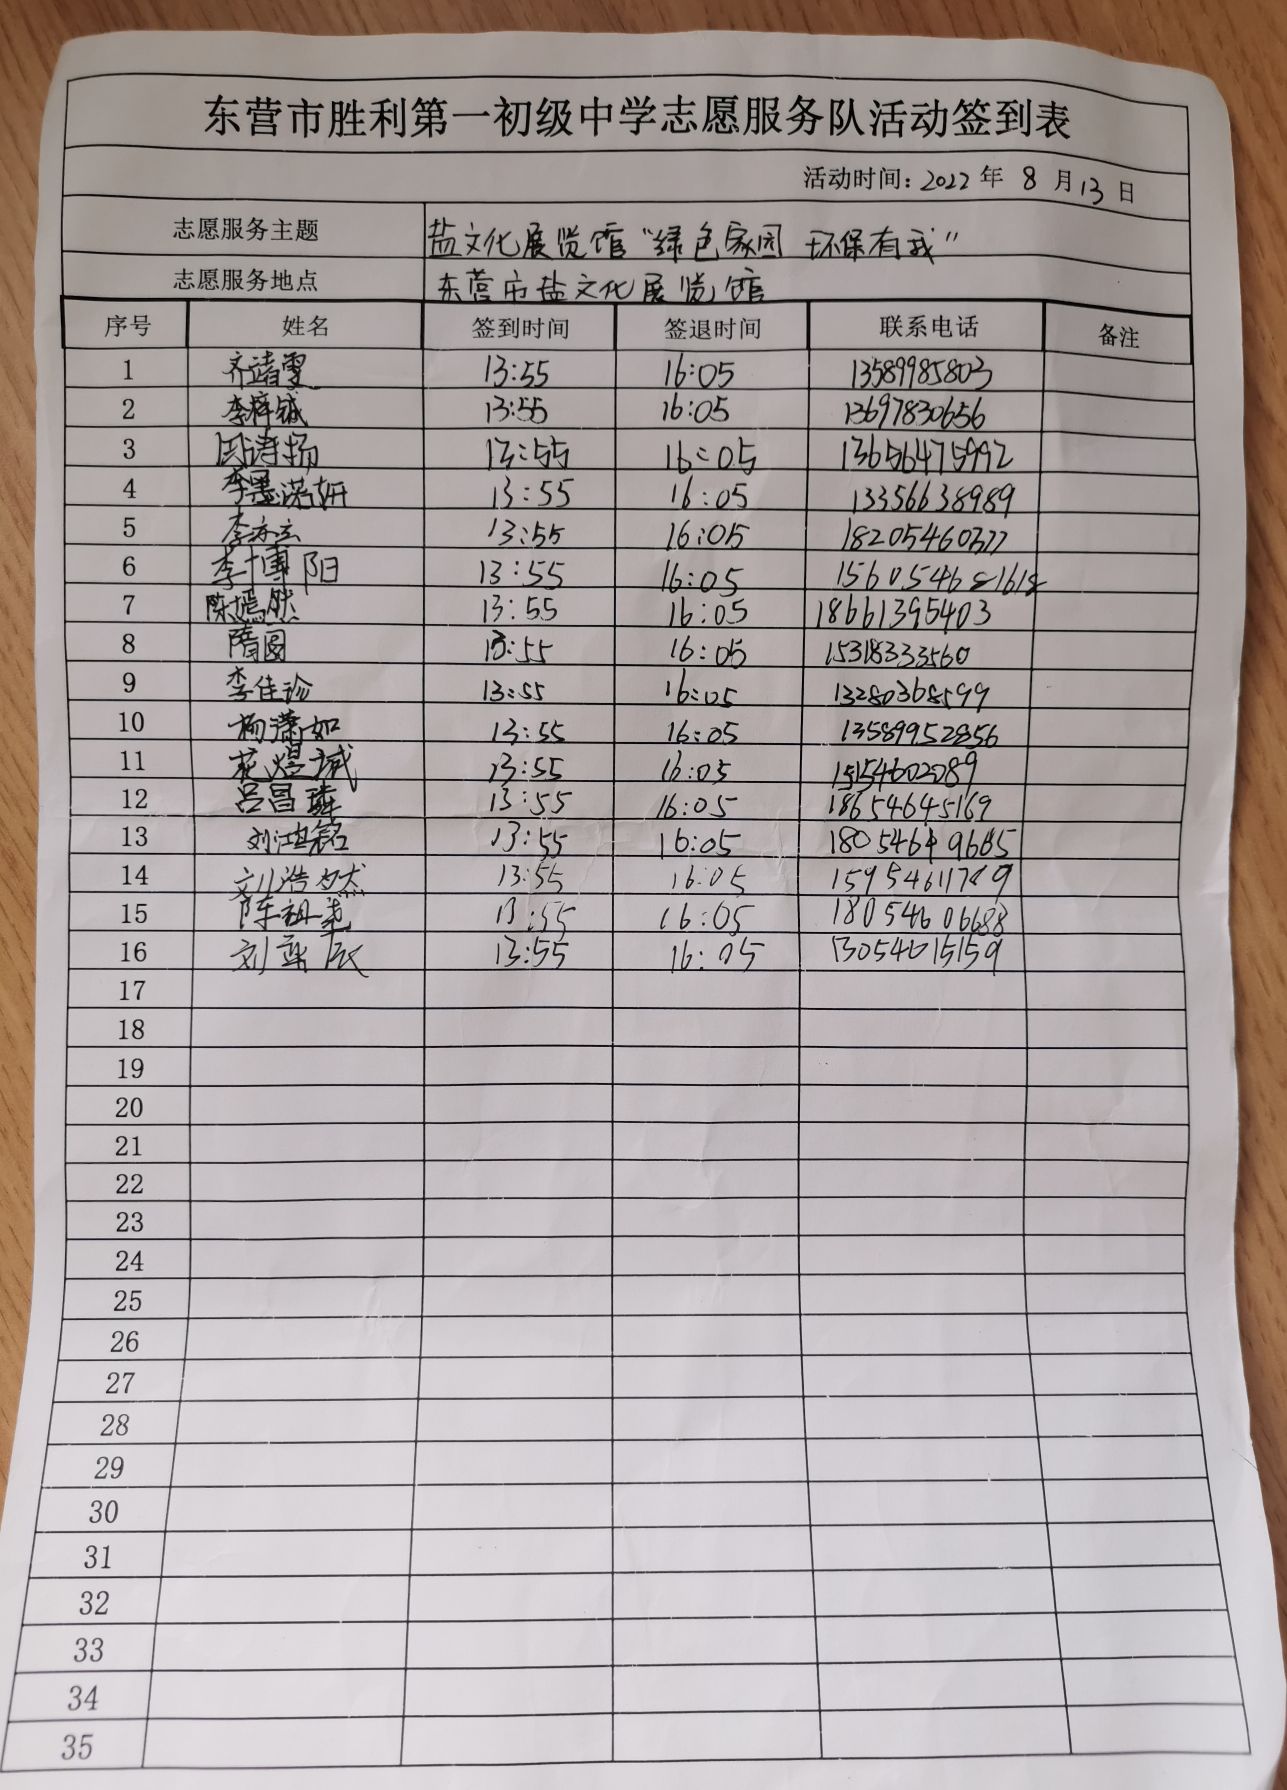 东营市胜利第一初级中学志愿服务队活动签到表
活动时间：2022 年 8 月 13 日
志愿服务主题 盐文化展览馆“绿色家园 环保有我”
志愿服务地点 东营市盐文化展览馆
序号 姓名 签到时间 签退时间 联系电话 备注
1 齐靖雯 13:55 16:05 13589985803
2 李梓铖 13:55 16:05 13697830656
3 周涛扬 13:55 16:05 13656475992
4 李墨涵妍 13:55 16:05 13356638989
5 李亦云 13:55 16:05 18205460377
6 李博阳 13:55 16:05 156054681618
7 陈嫣然 13:55 16:05 18661395403
8 隋圆 13:55 16:05 15318333560
9 李佳珍 13:55 16:05 13280368599
10 杨潇如 13:55 16:05 135899952856
11 花煜城 13:55 16:05 15154602089
12 吕昌璘 13:55 16:05 18654645169
13 刘鸿铭 13:55 16:05
14 刘浩然 13:55 16:05 15954611789
15 陈祖尧 13:55 16:05 18054606688
16 刘 辰 13:55 16:05 13054615159
17
18
19
20
21
22
23
24
25
26
27
28
29
30
31
32
33
34
35